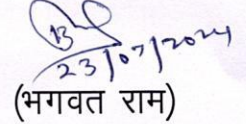 23/07/2024
(भगवत राम)